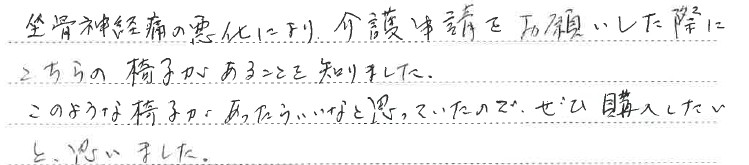 坐骨神経痛の悪化により、介護申請をお願いした際に
こちらの椅子があることを知りました。
このような椅子があったらいいなと思っていたので、ぜひ購入したい
と、思いました。